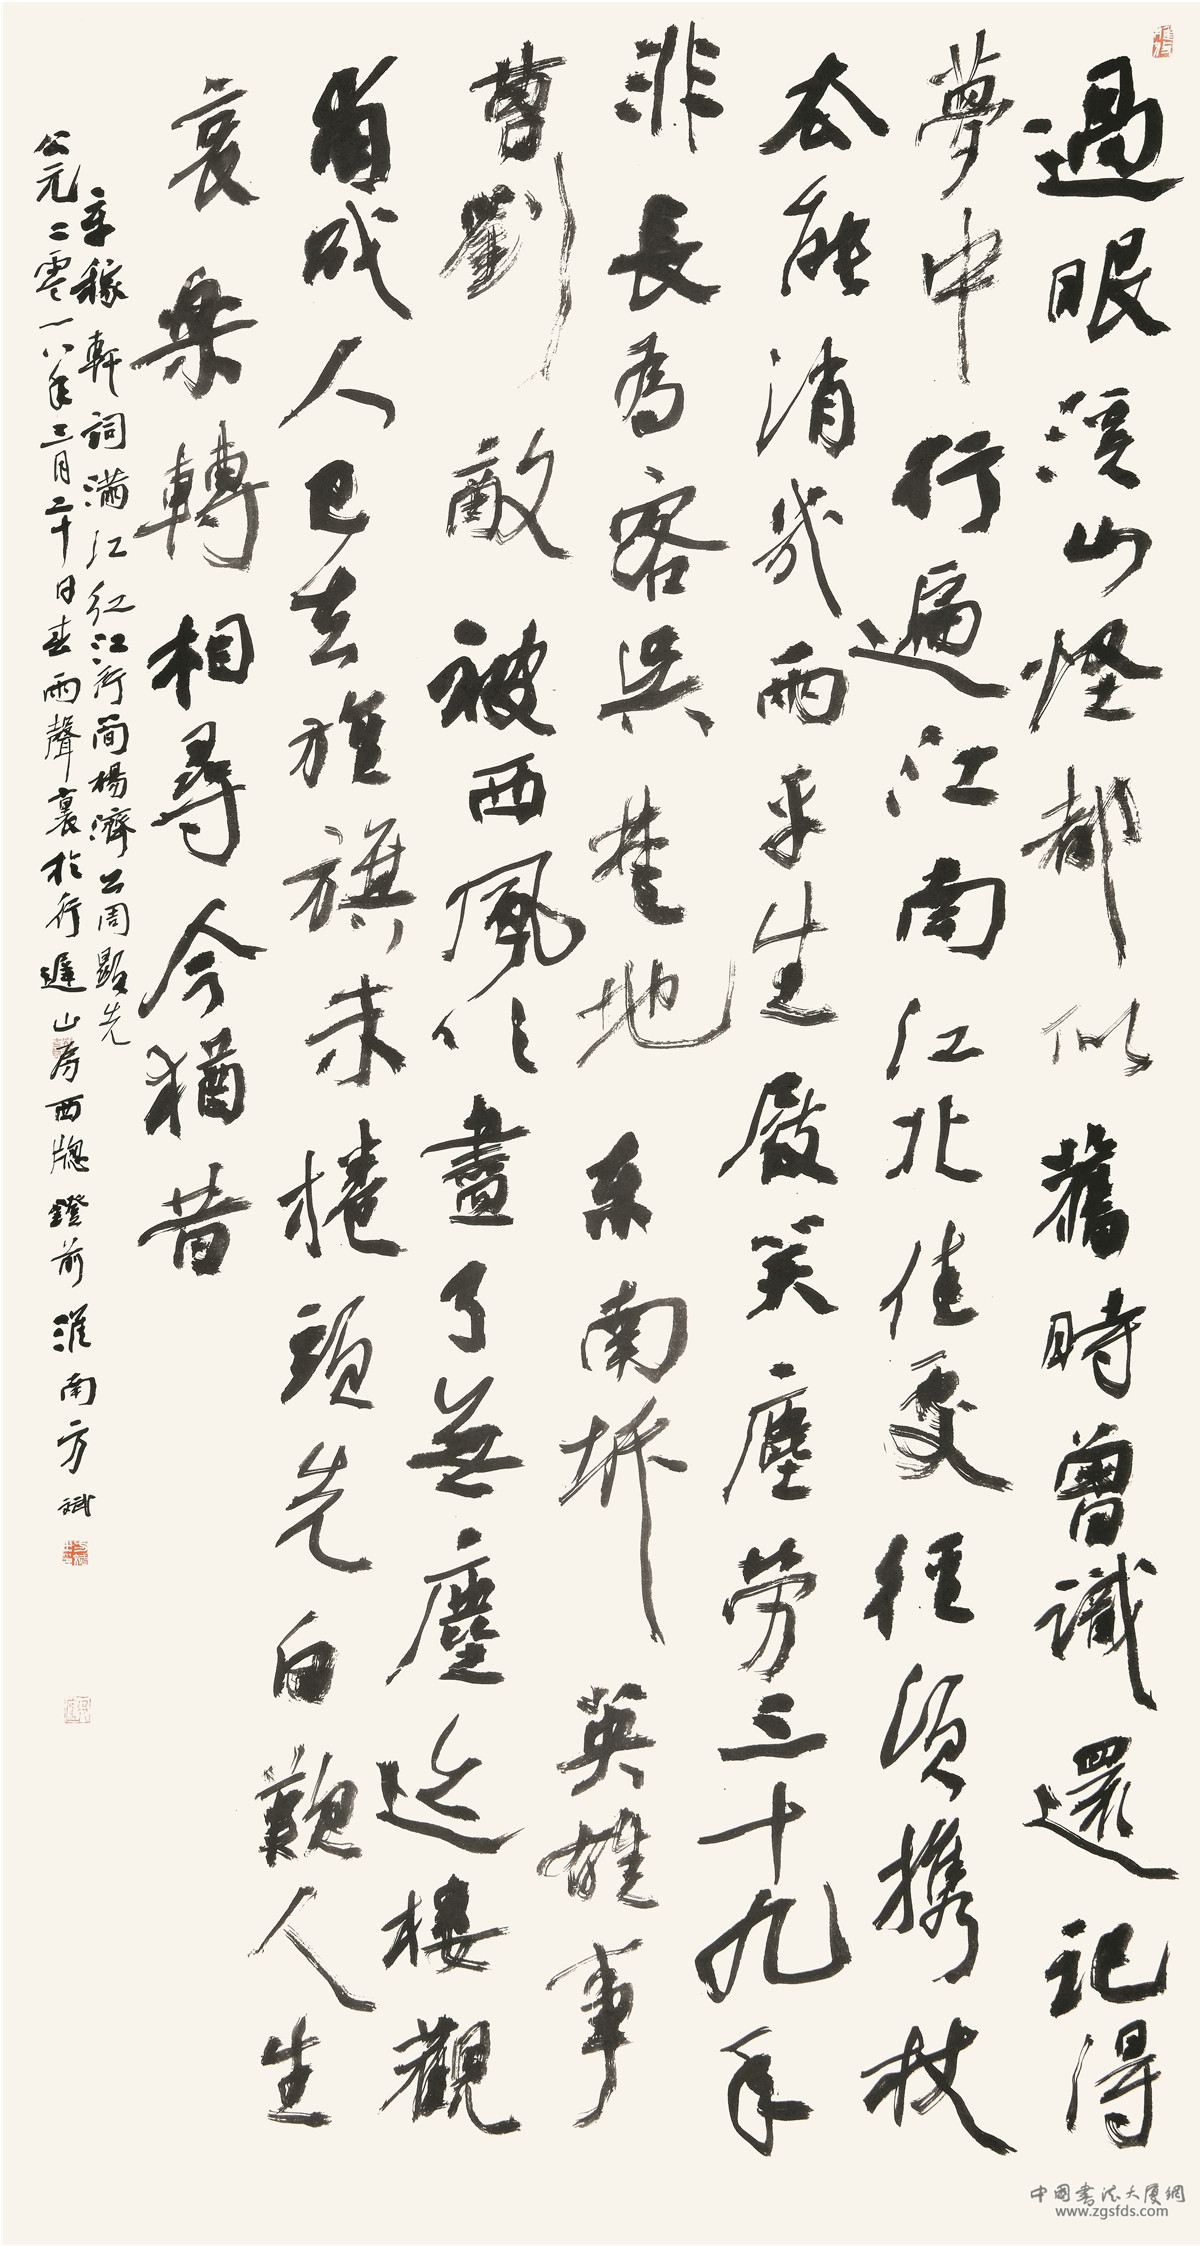 過眼溪山怪都似舊時曾識還記得
夢中行遍江南江北佳處徑須攜杖
去能消幾兩平生屐笑塵勞三十九年
非長為客吳楚地東南坼英雄事
曹劉敵被西風吹盡了無塵迹樓觀
甫成人已去旌旗未捲頭先白歎人生
哀樂轉相尋今猶昔
辛稼軒詞滿江紅江行簡楊濟公周顯先
公元二零一八年三月二十日春雨聲裏於行遲山房西牕鐙前淮南方斌
中國書法大厦網
www.zgsfds.com